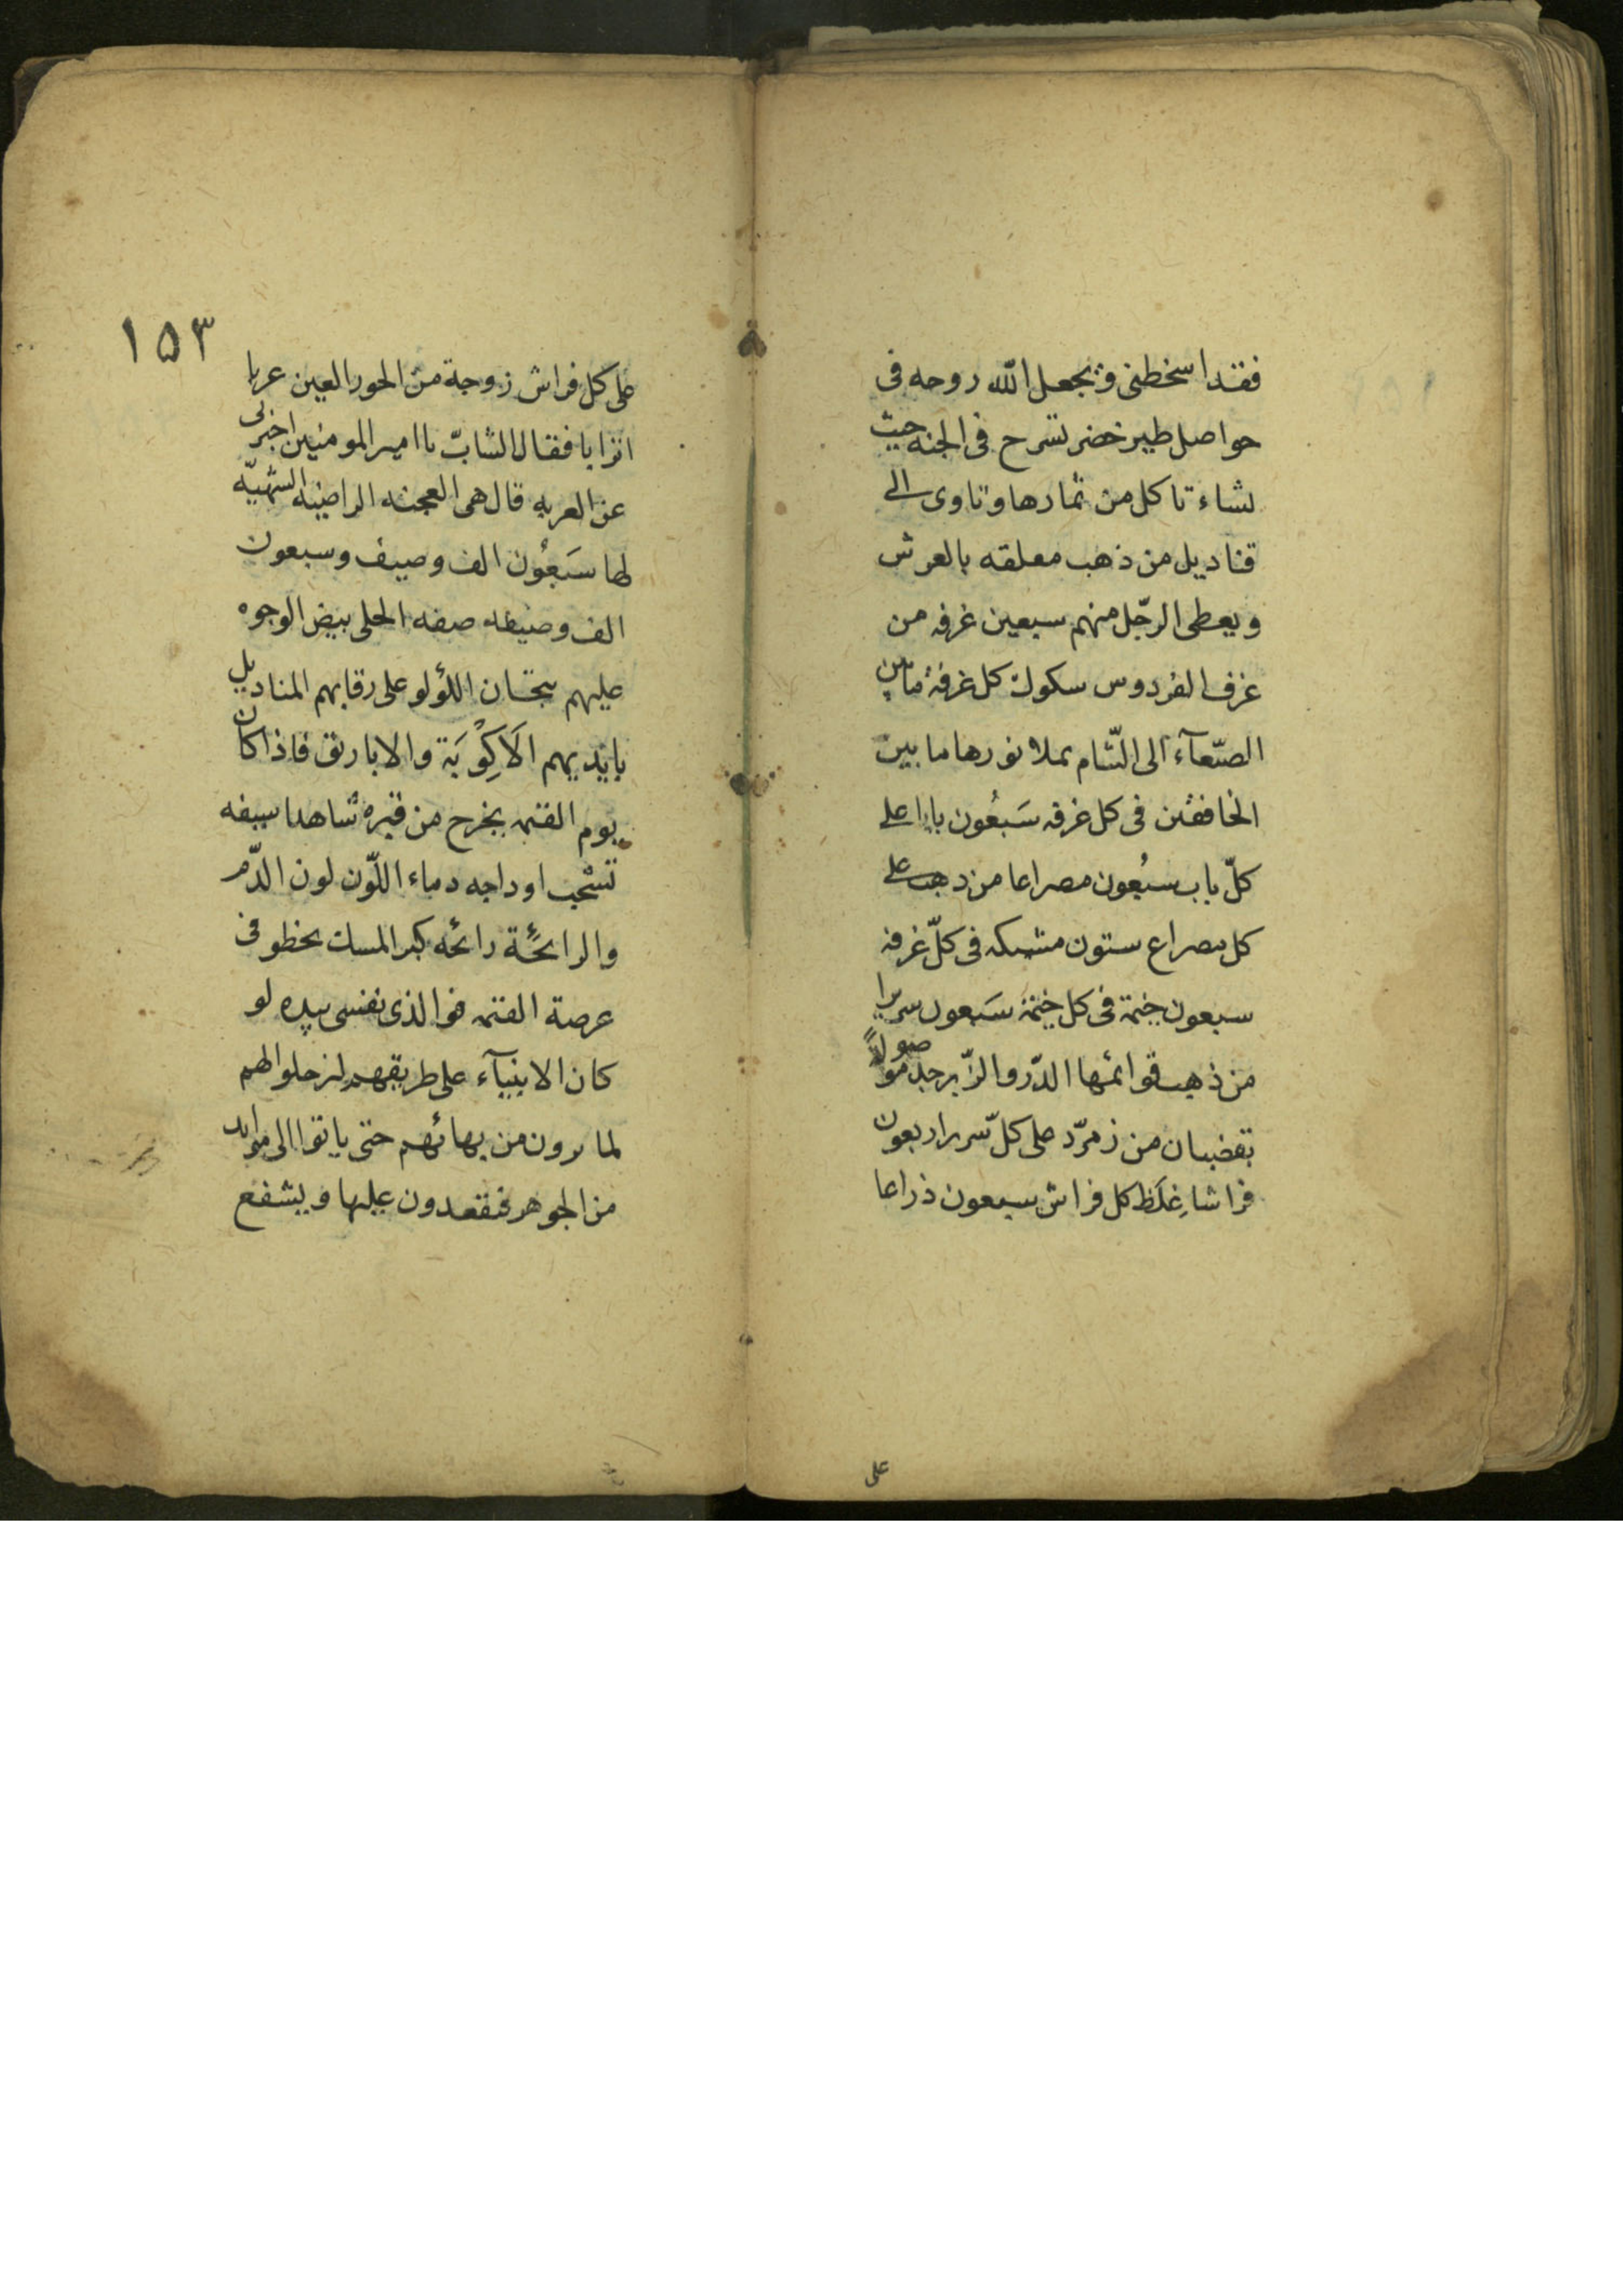 فقد اسخطنی و یجعل الله روحه فی
حواصل طیر خضر تسرح فی الجنه حیث
لشاء تاکل من ثمارها و تاوی الی
قنادیل من ذهب معلقه بالعرش
و یعطی الرّجل منهم سبعین غرفه من
غرف الفردوس سکوك کل غرفة مابین
الصّنعآء الی الشّام یملا نورها ما بین
الخافقین فی کل غرفه سَبعُون بابا علی
کلّ باب سبعُون مصراعا من ذهب علی
کل مصراع ستون مشبکه فی کلّ غرفه
سبعون خیمة فی کل خیمة سَبعون سریرا
من ذهب قوائمها الدّر و الزّبرجد موصولةً
بقضبان من زمرّد علی کلّ سریر اربعون
فراشا غِلَظ کل فراش سبعون ذراعا
علی
١٥٣
علی کل فراش زوجة من الحور العین عربا
اترابا فقال الشابّ یا امیر المومنین اخبرنی
عن العربه قال هی الغنجه الراضیه الشهیّه
لها سَبعُون الف وصیف و سبعون
الف وصیفه صفه الحلی بیض الوجوه
علیهم تیجان اللؤلو علی رقابهم المنادیل
بایدیهم الَاکِوْبَة و الاباریق فاذا کان
یوم القیمه یخرج من قبره شاهدا سیفه
تشخب اوداجه دماء اللّون لون الدّم
و الرایحَة رائحه المسك یخطو فی
عرصة القیمه فوالذی نفسی بیده لو
کان الانبیآء علی طریقهم لترجلوا لهم
لما یرون من بهائهم حتی یاتوا الی مواید
من الجوهر فیقعدون علیها و یشفع